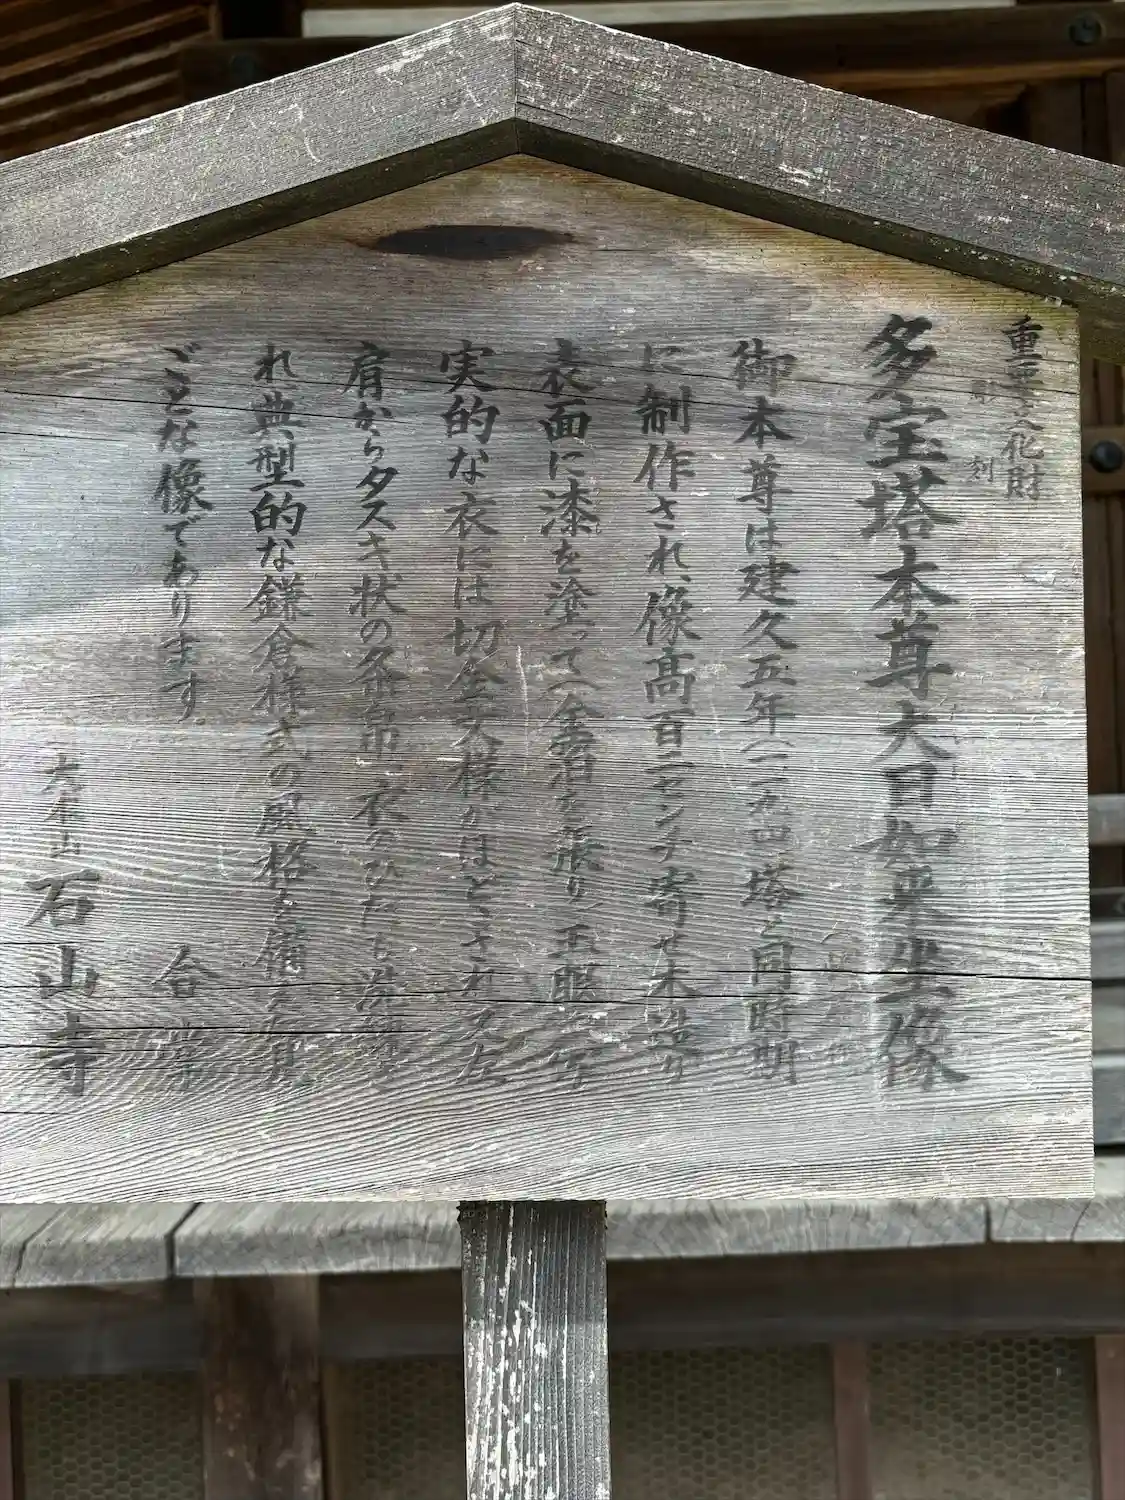 重要文化財
彫刻
多宝塔本尊大日如来坐像
御本尊は建久五年(一一九四塔と同時期
に制作され、像高百一センチ寄せ木造り
表面に漆を塗って(金箔を張り、玉眼
実的な衣には切金文様がほどこされ又左
肩からタスキ状の条帛、衣のひだも
れ典型的な鎌倉様式の風格を備えた見
ごとな像であります。
合掌
大本山 石山寺